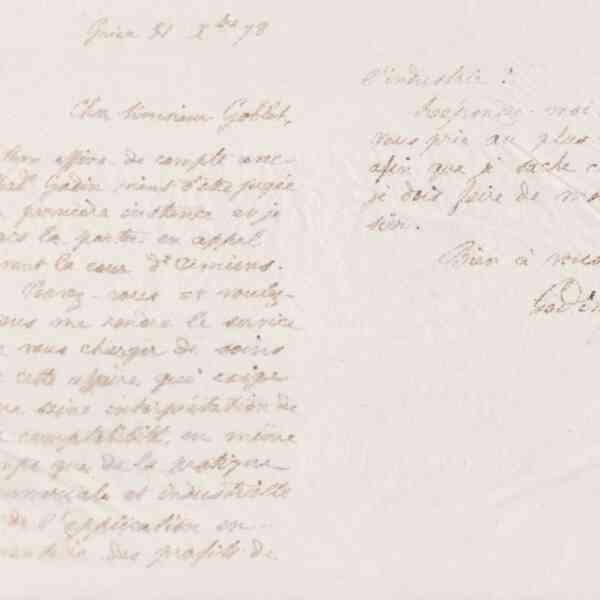 Guise 31 Xbre 78
Cher Monsieur Goblet,
affaire de compte avec
Godin vient d'être jugée
première instance et je
la porter en appel
la cour d'Amiens.
Pouvez-vous et voulez-
me rendre le service
vous charger de soins
cette affaire qui exige
saine interprétation de
comptabilité, en même
que de la pratique
et industrielle
de l'application en
des profits de
l'industrie ?
Répondez-moi
vous prie au plus
afin que je sache
je dois faire de
Bien à vous
Godin